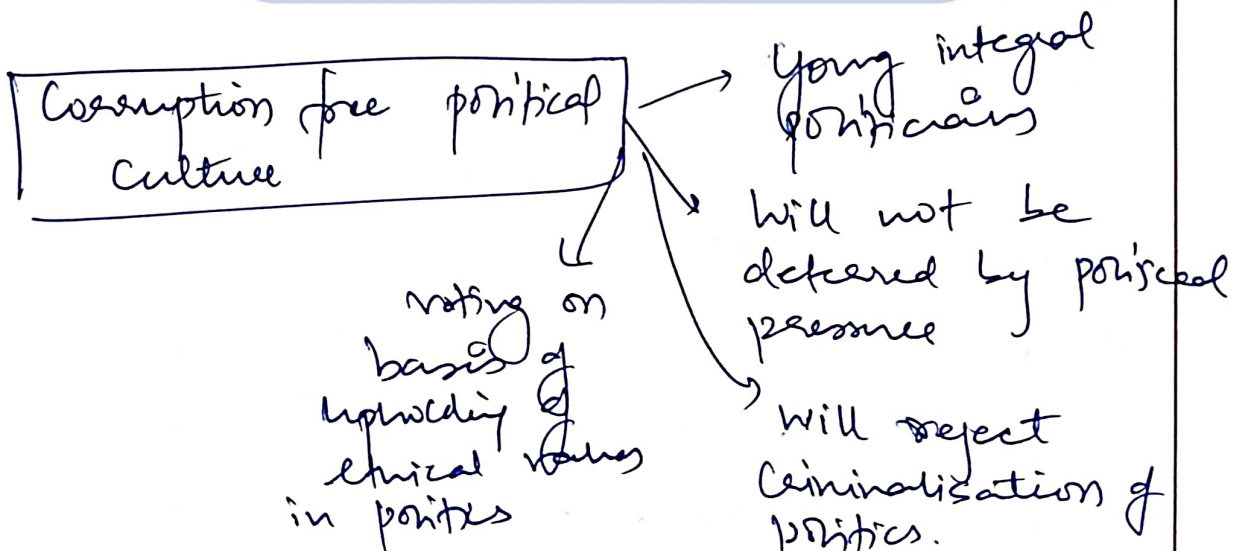 Corruption free political
culture
Young integral
politicians
Will not be
deterred by political
pressure
Will reject
Criminalisation of
politics.
voting on
basis of
upholding of
ethical values
in politics